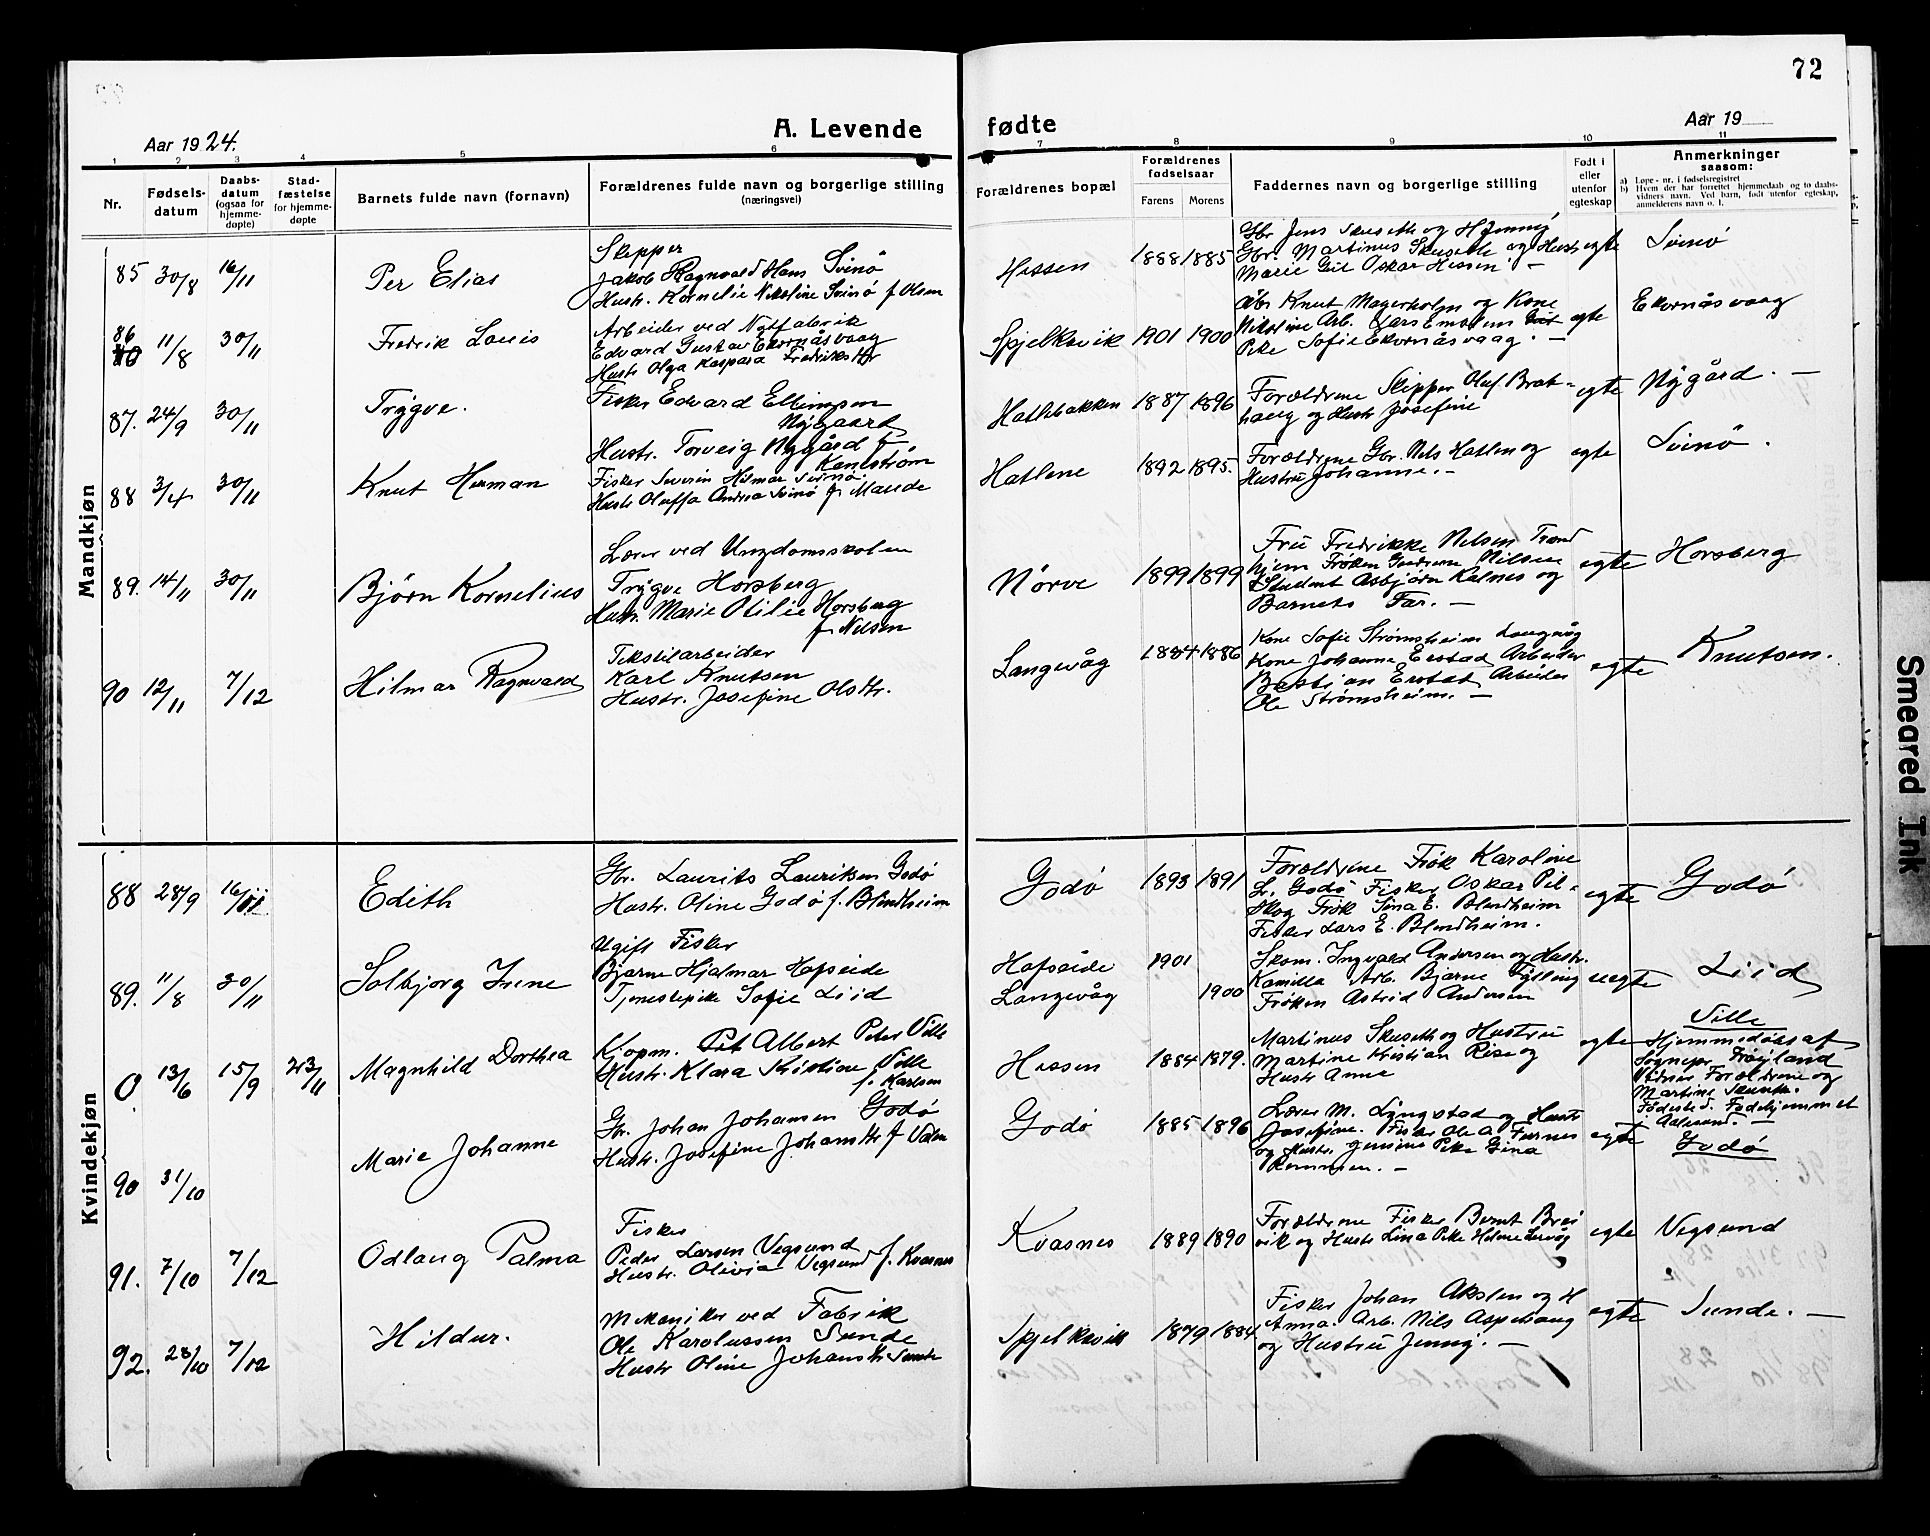 72
Aar 1924.
A. Levende fødte
Aar 19
1 2 3 4 5 6 7 8 9 10 11
Nr.
Fødsels-
datum
Daabs-
datum
(ogsaa for
hjemme-
døpte)
Stad-
fæstelse
for hjemme-
døpte
Barnets fulde navn (fornavn)
Forældrenes fulde navn og borgerlige stilling
(næringsvei)
Forældrenes bopæl
Forældrenes
fødselsaar
Farens Morens
Faddernes navn og borgerlige stilling
Født i
eller
utenfor
egteskap
Anmerkninger
saasom:
a) Løpe-nr. i fødselsregistret
b) Hvem der har forrettet hjemmedaab og to daabs-
vidners navn. Ved barn, født utenfor egteskap,
anmelderens navn o. l.
Mandkjøn
85 30/8 16/11 Per Elias
Skipper
Jakob Ragnvald Hans Svinö
Hustr. Kornelie Nikoline Svinö f Olsen
Hessen 1888 1885
Gbr Jens Skuseth og H Jenny
Gbr. Martinus Skuseth og Hustr
Marie Git Oskar Hessen. —
egte Svinö
86 11/8 30/11 Fredrik Louis
Arbeider ved Notfabrik
Edvard Gustav Ekornåsvaag
Hustr Olga Kaspara Fredriks dtr
Spjelkavik 1901 1900
Gbr Knut Magerholm og Kone
Nikoline Arb. Lars Emblem
Pike Sofie Ekornåsvaag. —
egte Ekornåsvaag
87. 24/9 30/11 Trygve.
Fisker Edvard Ellingsen
Nygaard
Hustr. Torveig Nygård f.
Hatlebakken 1887 1896
Forældrene Skipper Oluf Brat-
haug og Hustr Josefine
egte Nygård. —
88 3/4 30/11 Knut Herman
Fisker Severin Hilmar Svinö
Hustr Oluffa Andrea Svinö f. Mande
Hatlene 1892 1895.
Forældrene Gbr. Nils Hatlen og
Hustru Johanne. —
egte Svinö.
89. 14/11 30/11 Bjørn Kornelius
Lærer ved Ungdomsskolen
Trygve Horsberg
Hustr. Marie Otilie Horsberg
f Nilsen
Nörve 1899 1899
Fru Fredrikke Nilsen Trond
hjem Frøken Gudrun Nilsen
Student Asbjørn Kalnes og
Barnets Far. —
egte Horsberg
90 12/11 7/12 Hilmar Ragnvald
Tekstilarbeider
Karl Knutsen
Hustr. Josefine Olsdtr.
Langevåg 1884 1886
Kone Sofie Strømsheim Langevåg
Kone Johanne Erstad Arbeider
Bastian Erstad Arbeider
Ole Strømsheim. —
egte Knutsen.
Kvindekjøn
88 28/9 16/11 Edith
Gbr. Laurits Lauritsen Godø
Hustr. Oline Godø f. Blindheim
Godø 1893 1891
Forældrene Frøk Karoline
L. Godø Fisker Oskar Pil-
skog Frøk Sina E. Blindheim
Fisker Lars E. Blindheim.
egte Godø
89. 11/8 30/11 Solbjorg Irene
Ugift Fisker
Bjarne Hjalmar Hofseide
Tjenestepike Sofie Liid
Hofseide 1901
Langevåg 1900
Skom. Ingvald Andersen og Hustr.
Kamilla Arb. Bjarne Fylling
Frøken Astrid Andersen
uegte Liid
0 13/6 15/9 23/11 Magnhild Dorthea
Kjøpm. Albert Peter Ville
Hustr. Klara Kristine Ville
f. Karlsen
Hessen 1884 1879.
Martinus Skuseth og Hustru
Martine Kristian Rise og
Hustr Anne
egte Ville
Hjemmedøbt af
Sognepr Frøyland
Vidner Forældrene og
Martine Skuseth.
Fødested. Fødehjemmet
Aalesund. —
90 31/10 Marie Johanne
Gbr. Johan Johansen Godø
Hustr. Josefine Johansdtr f Valen
Godø 1885 1896
Lærer M. Lyngstad og Hustr
Josefine. Fisker Ole A Furnes
og Hustr Jensine Pike Gina
Remmen. —
egte Godø
91. 7/10 7/12 Odlaug Palma
Fisker
Peder Larsen Vegsund
Hustr. Olivia Vegsund f. Kvasnes
Kvasnes 1889 1890
Forældrene Fisker Bernt Brei
vik og Hustr Lina Pike Helene Lervåg
egte Vegsund
92. 28/10 7/12 Hildur.
Mekaniker ved Fabrik
Ole Karolussen Sunde
Hustr Oline Johansdtr Sunde
Spjelkavik 1879 1884
Fisker Johan Akslen og H
Anna. Arb. Nils Aspehaug
og Hustru Jenny. —
egte Sunde. —
Smeared Ink